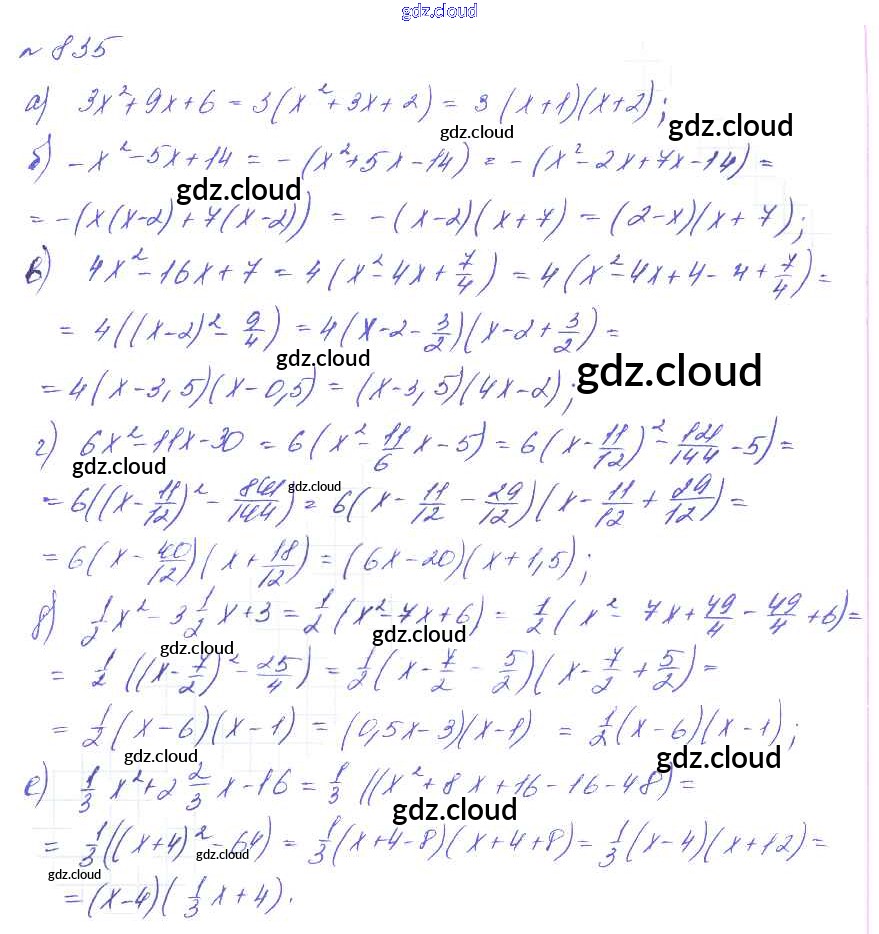 gdz.cloud
№ 835
а) 3x² + 9x + 6 = 3(x² + 3x + 2) = 3(x+1)(x+2);
gdz.cloud gdz.cloud
б) -x² - 5x + 14 = -(x² + 5x - 14) = -(x² - 2x + 7x - 14) =
gdz.cloud
= -(x(x-2) + 7(x-2)) = -(x-2)(x+7) = (2-x)(x+7);
в) 4x² - 16x + 7 = 4(x² - 4x + 7/4) = 4(x² - 4x + 4 - 4 + 7/4) =
= 4((x-2)² - 9/4) = 4(x - 2 - 3/2)(x - 2 + 3/2) =
gdz.cloud gdz.cloud
= 4(x - 3,5)(x - 0,5) = (x - 3,5)(4x - 2);
г) 6x² - 11x - 30 = 6(x² - 11/6 x - 5) = 6(x - 11/12)² - 121/144 - 5) =
gdz.cloud gdz.cloud
= 6((x - 11/12)² - 841/144) = 6(x - 11/12 - 29/12)(x - 11/12 + 29/12) =
= 6(x - 40/12)(x + 18/12) = (6x - 20)(x + 1,5);
д) 1/2 x² - 3 1/2 x + 3 = 1/2 (x² - 7x + 6) = 1/2 (x² - 7x + 49/4 - 49/4 + 6) =
gdz.cloud gdz.cloud
= 1/2 ((x - 7/2)² - 25/4) = 1/2 (x - 7/2 - 5/2)(x - 7/2 + 5/2) =
= 1/2 (x - 6)(x - 1) = (0,5x - 3)(x - 1) = 1/2 (x - 6)(x - 1);
gdz.cloud gdz.cloud
е) 1/3 x² + 2 2/3 x - 16 = 1/3 ((x² + 8x + 16 - 16 - 48) =
gdz.cloud
= 1/3 ((x+4)² - 64) = 1/3 (x + 4 - 8)(x + 4 + 8) = 1/3 (x - 4)(x + 12) =
gdz.cloud gdz.cloud
= (x - 4)(1/3 x + 4).